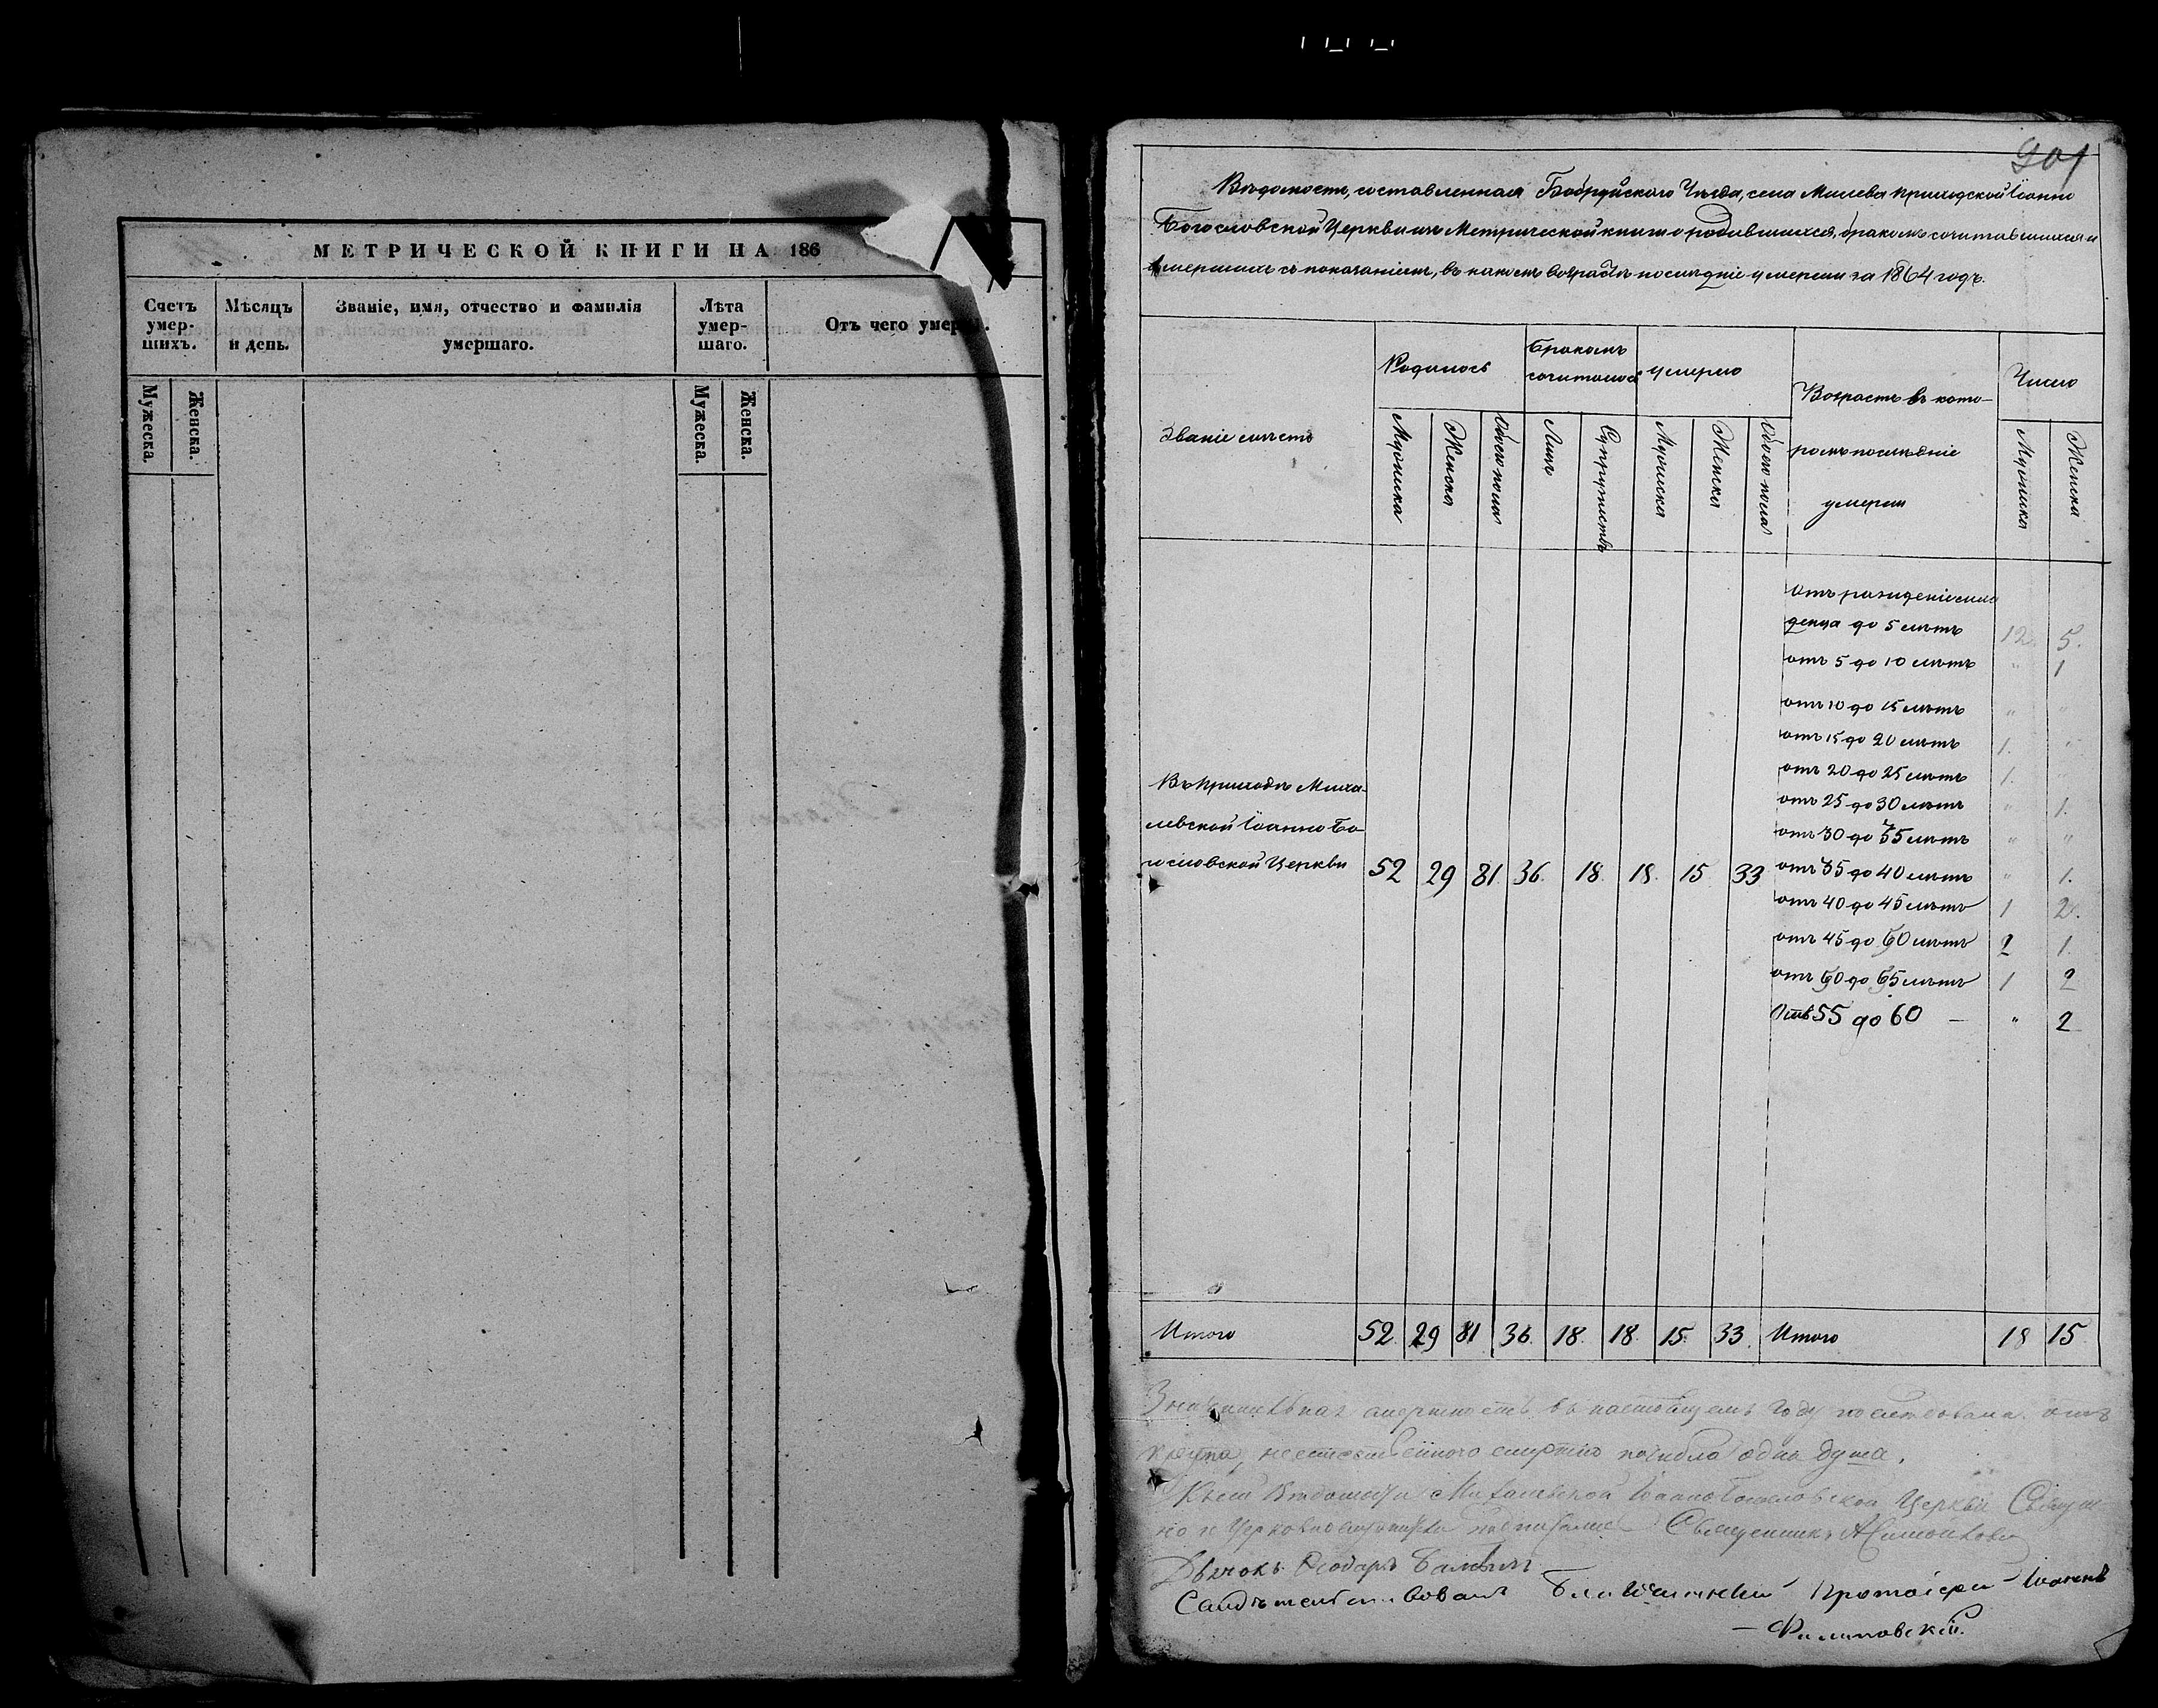 МЕТРИЧЕСКОЙ КНИГИ НА 186
Счетъ умер-шихъ.
Мѣсяцъ и день.
Званіе, имя, отчество и фамилія умершаго.
Лѣта умер-шаго.
Отъ чего умер
Мужеска.
Женска.
Мужеска.
Женска.
201
Вѣдомость, составленная Бобруйскаго Уѣзда, села приходской Іоанно
Богословской Церкви изъ Метрической книги о родившихся, бракомъ сочетавшихся и
умершихъ съ показаніемъ, въ какомъ возрастѣ послѣдніе умерли за 1864 годъ.
Званіе мѣстъ
Родилось
Бракомъ
сочиталось
умерло
Возрастъ въ кото-
ромъ послѣдніе
умерли
Число
Мужеска
Женска
Обоего пола
Лицъ
Супружествъ
Мужеска
Женска
Обоего пола
Мужеска
Женска
отъ рожденія мла
денца до 5 лѣтъ 12. 5.
отъ 5 до 10 лѣтъ " 1
отъ 10 до 15 лѣтъ " "
отъ 15 до 20 лѣтъ 1. "
отъ 20 до 25 лѣтъ 1. "
отъ 25 до 30 лѣтъ " 1.
отъ 30 до 35 лѣтъ " "
отъ 35 до 40 лѣтъ " 1.
отъ 40 до 45 лѣтъ 1 2.
отъ 45 до 50 лѣтъ 2 1.
отъ 50 до 55 лѣтъ 1 2
Отъ 55 до 60 — " 2
Въ приходѣ Миха-
левской Іоанно Бо-
гословской Церкви 52 29 81. 36. 18. 18. 15 33
Итого 52. 29 81 36. 18. 18. 15. 33. Итого 18 15
смертность въ настоящемъ году послѣдовала отъ
крупа, неестественною смертію погибла одна душа.
Къ сей Вѣдомости Михалевской Іоанно Богословской Церкви Священ
но и Церковнослужители подписались Священникъ
Дьячокъ Ѳеодоръ
Свидѣтельствовалъ Благочинный Протоіерей Іоаннъ